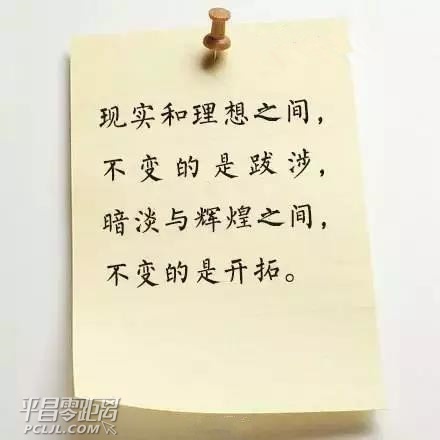 现实和理想之间，
不变的是跋涉，
暗淡与辉煌之间，
不变的是开拓。
平昌零距离
PCLJL.COM